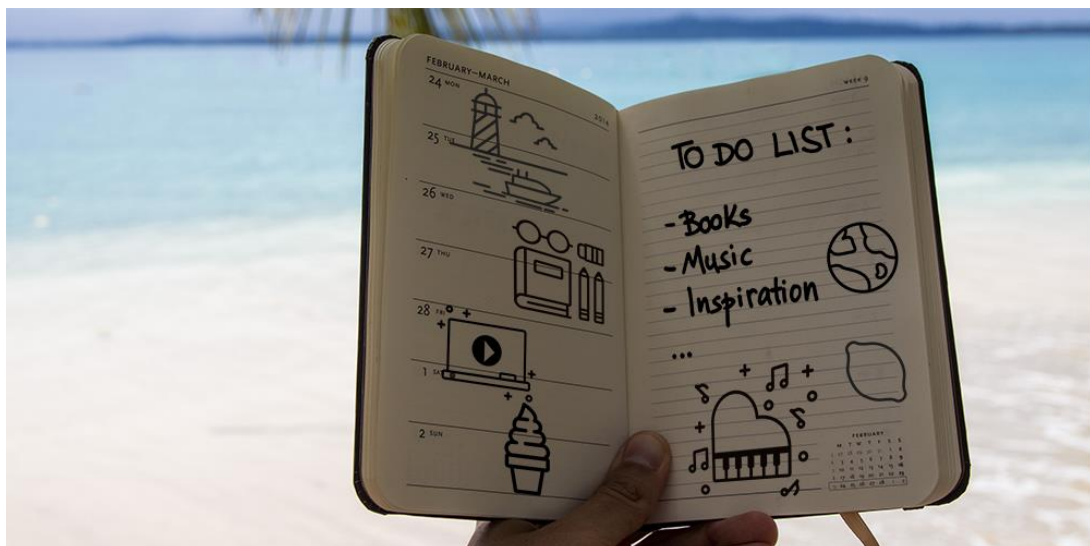 FEBRUARY–MARCH
2014
24 MON
25 TUE
26 WED
27 THU
28 FRI
1 SA
2 SUN
WEEK 9
TO DO LIST :
- Books
- Music
- Inspiration
...
FEBRUARY
M T W T F S S